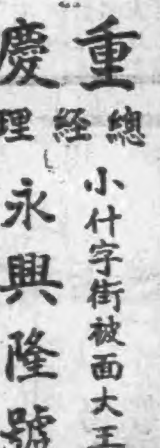 重慶
總經理
小什字街被面大王
永興隆號